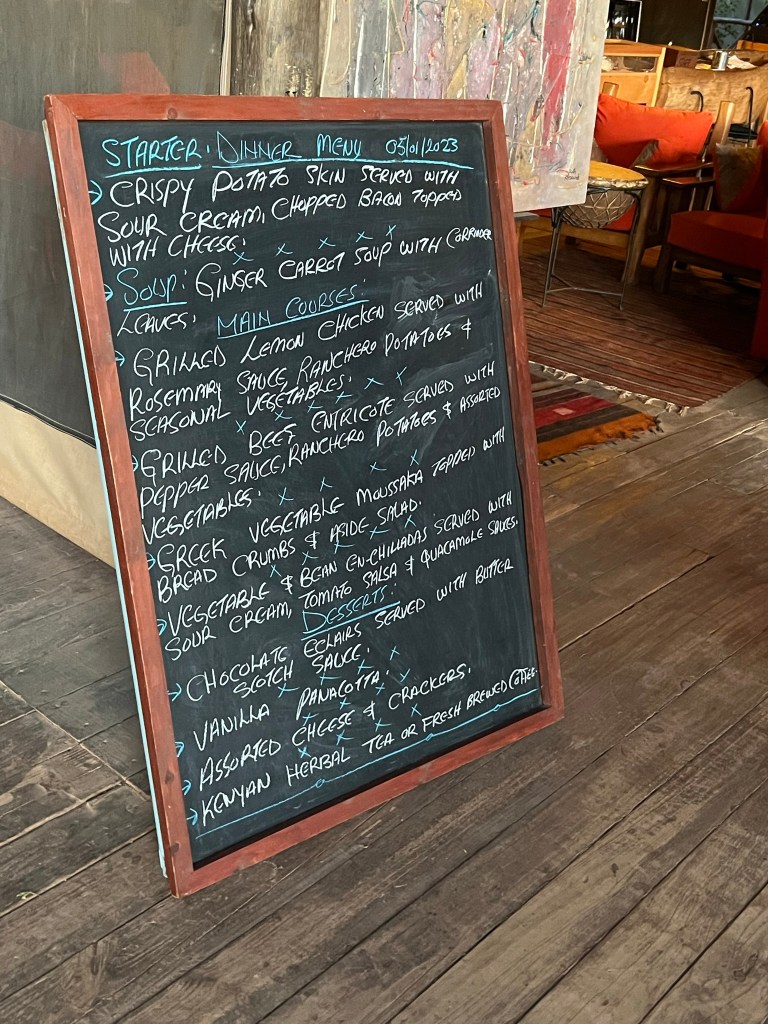 STARTER. DINNER MENU 05/01/2023
→ CRISPY POTATO SKIN SERVED WITH
SOUR CREAM, CHOPPED BACON TOPPED
WITH CHEESE.
x x x x x
→ SOUP: GINGER CARROT SOUP WITH CORRINDER
LEAVES. MAIN COURSES:
→ GRILLED LEMON CHICKEN SERVED WITH
ROSEMARY SAUCE, RANCHERO POTATOES &
SEASONAL VEGETABLES.
x x x x x
→ GRILLED BEEF ENTRICOTE SERVED WITH
PEPPER SAUCE, RANCHERO POTATOES & ASSORTED
VEGETABLES. x x x x
→ GREEK VEGETABLE MOUSSAKA TOPPED WITH
BREAD CRUMBS & ASIDE SALAD.
x x x x x
→ VEGETABLE & BEAN EN-CHILLADAS SERVED WITH
SOUR CREAM, TOMATO SALSA & GUACAMOLE SAUCES.
DESSERTS:
→ CHOCOLATE ECLAIRS SERVED WITH BUTTER
SCOTCH SAUCE.
x x x x
→ VANILLA PANACOTTA.
x x x x
→ ASSORTED CHEESE & CRACKERS.
x x x x
→ KENYAN HERBAL TEA OR FRESH BREWED COFFEE.